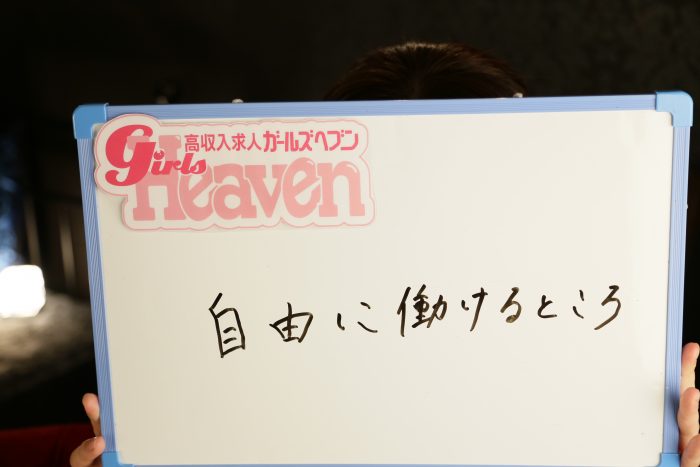 高収入求人ガールズヘブン
Girls
Heaven
自由に働けるところ